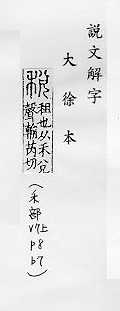 説文解字
大徐本
税 租也从禾兌
聲輸芮切
(禾部
V7上
p8
b7)